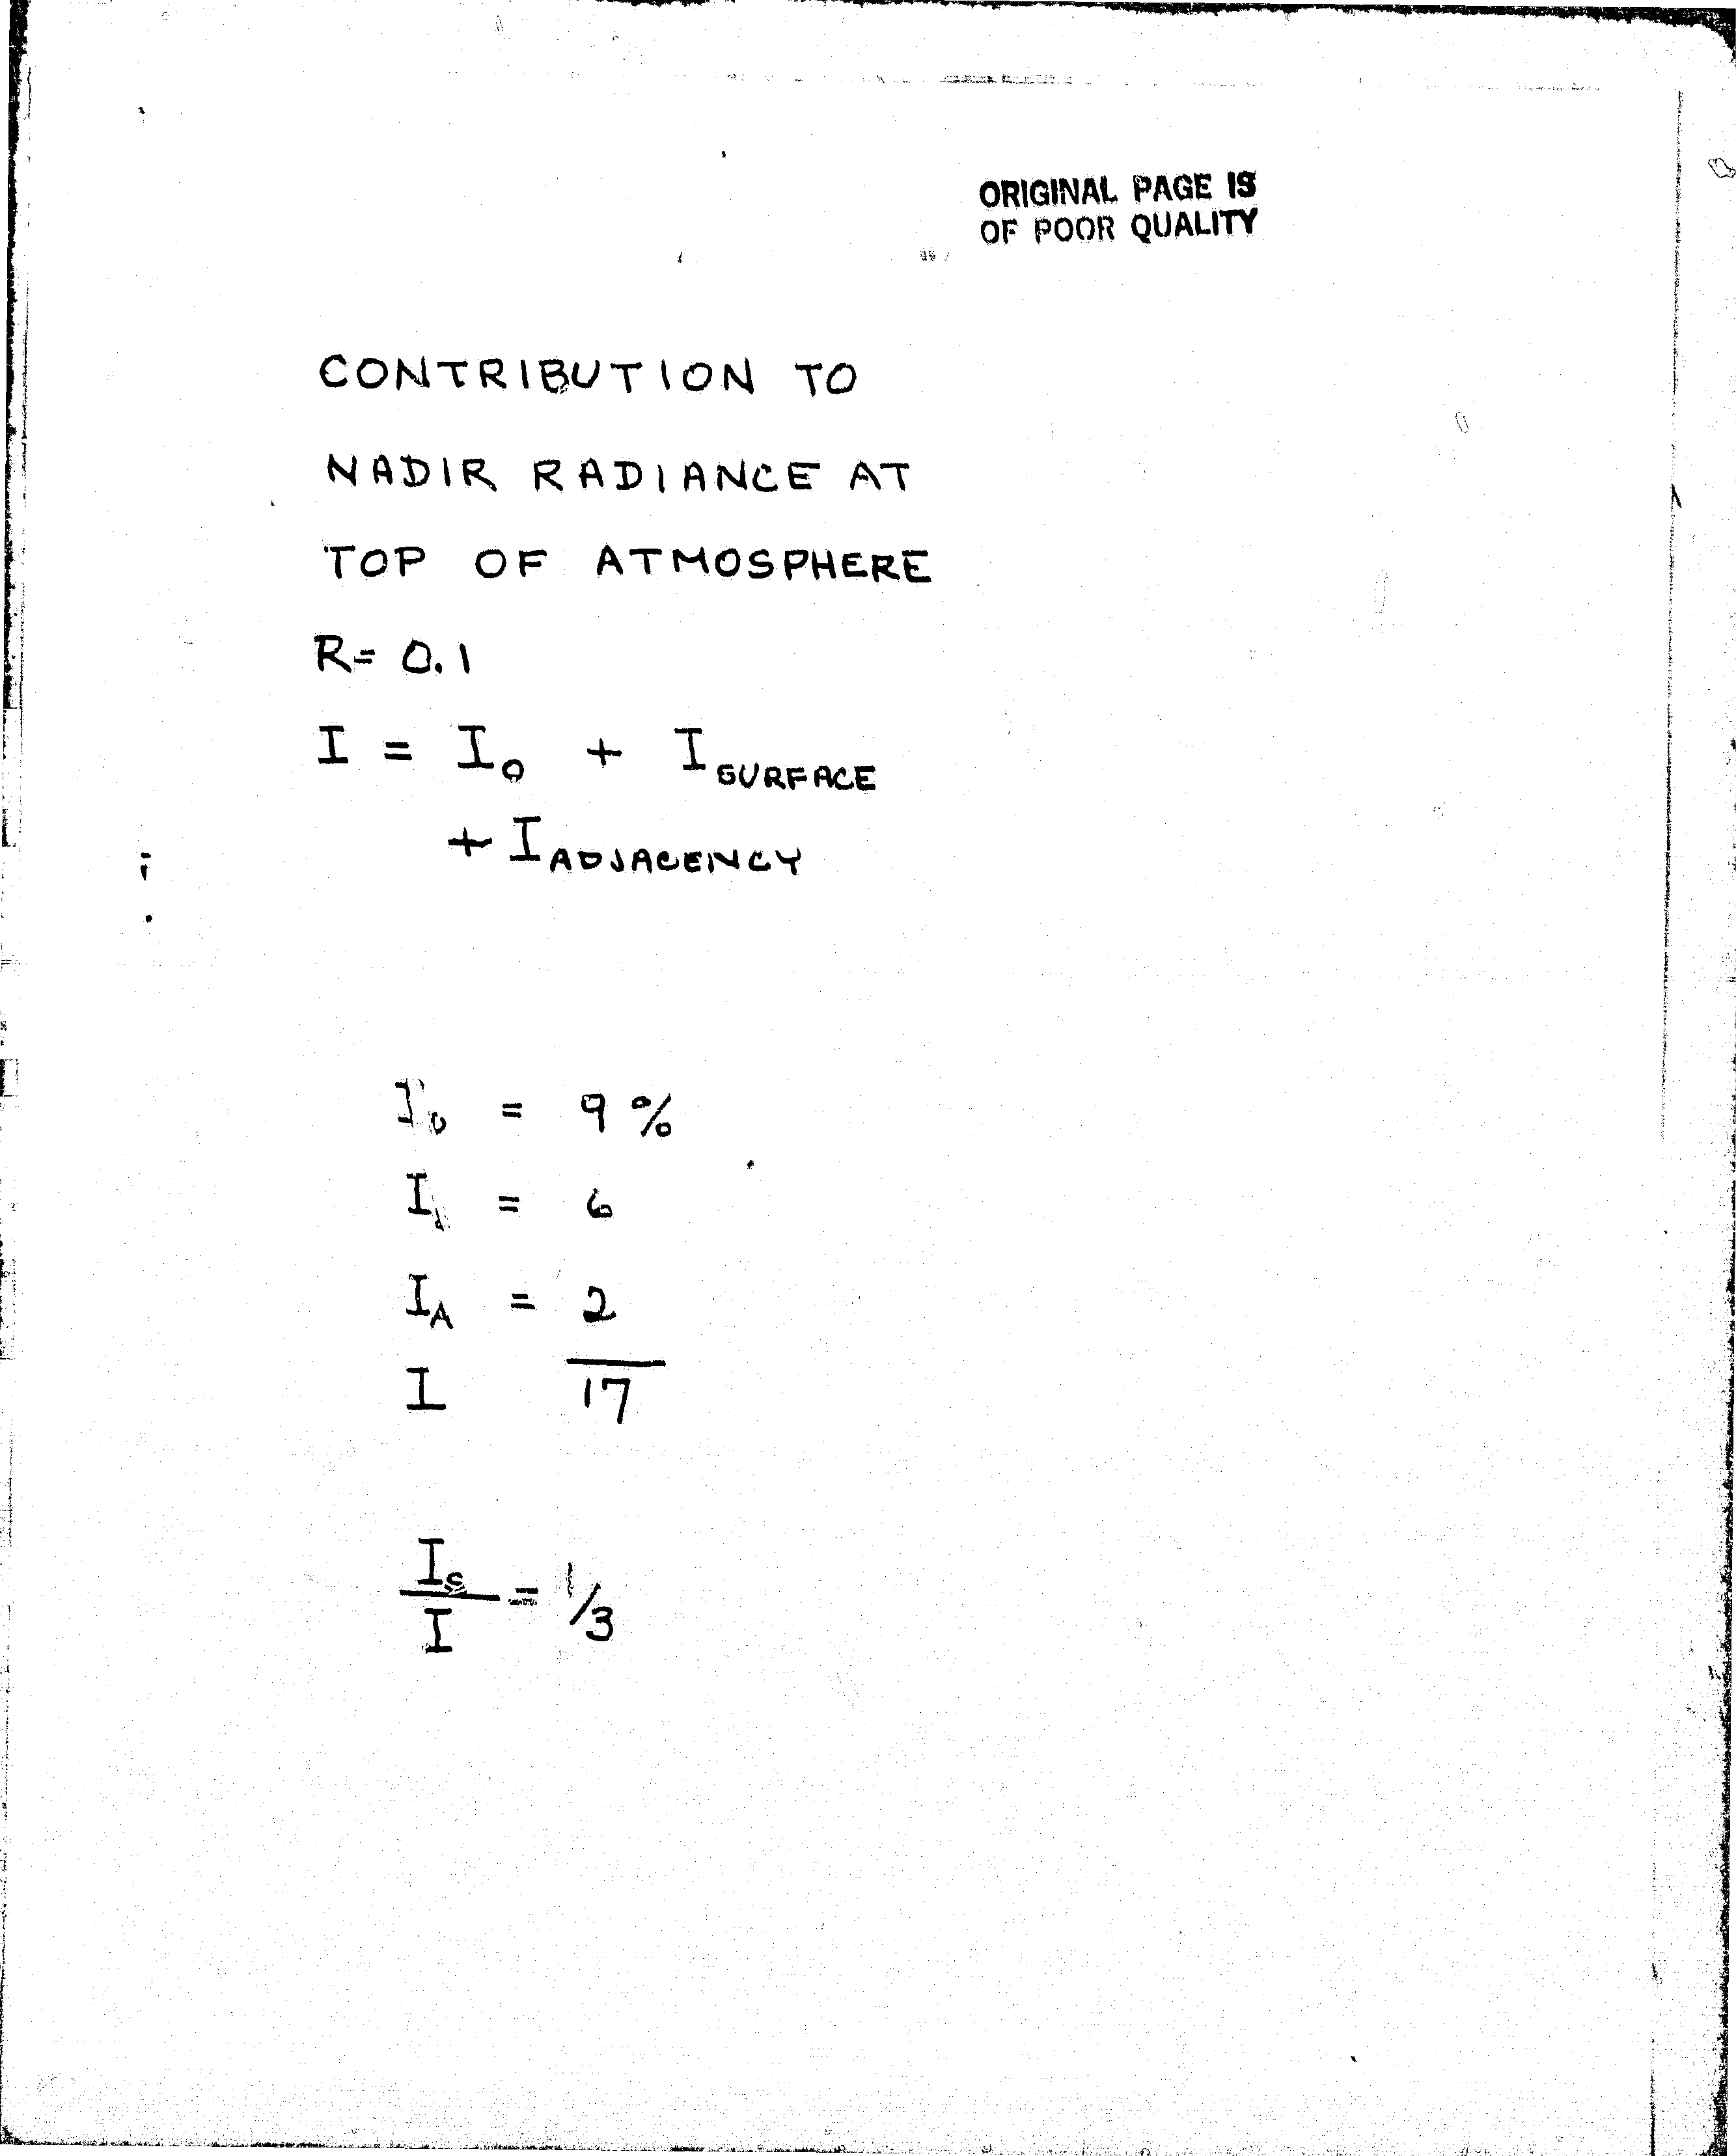 ORIGINAL PAGE IS
OF POOR QUALITY
CONTRIBUTION TO
NADIR RADIANCE AT
TOP OF ATMOSPHERE
R = 0.1
I = I₀ + I SURFACE
+ I ADJACENCY
I₀ = 9 %
I = 6
I_A = 2
I 17
I_S
I = 1/3